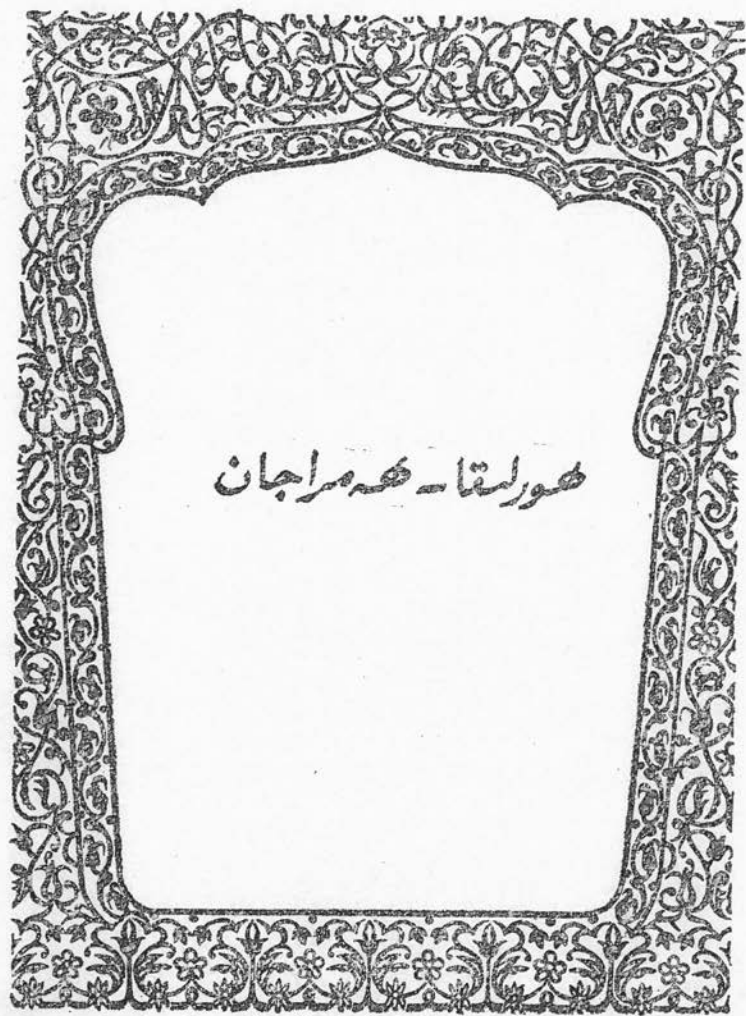 ھۆرلىقا ـ ھەمراجان